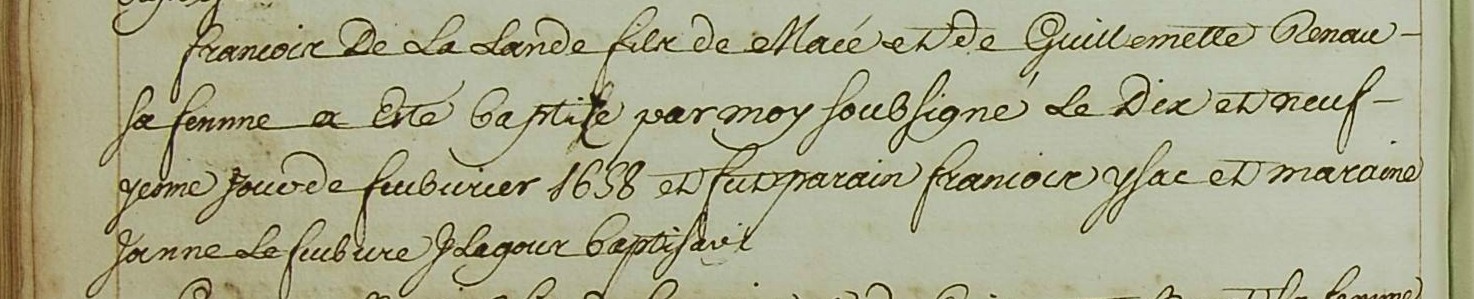 francois De La Lande fils de Macé et de Guillemette Renou -
sa femme a Esté baptise par moy soubsigné Le Dix et neuf -
yesme Jour de feubvrier 1638 et fut parain francois ysac et maraine
Janne Le feubvre J Lagoux baptisavit